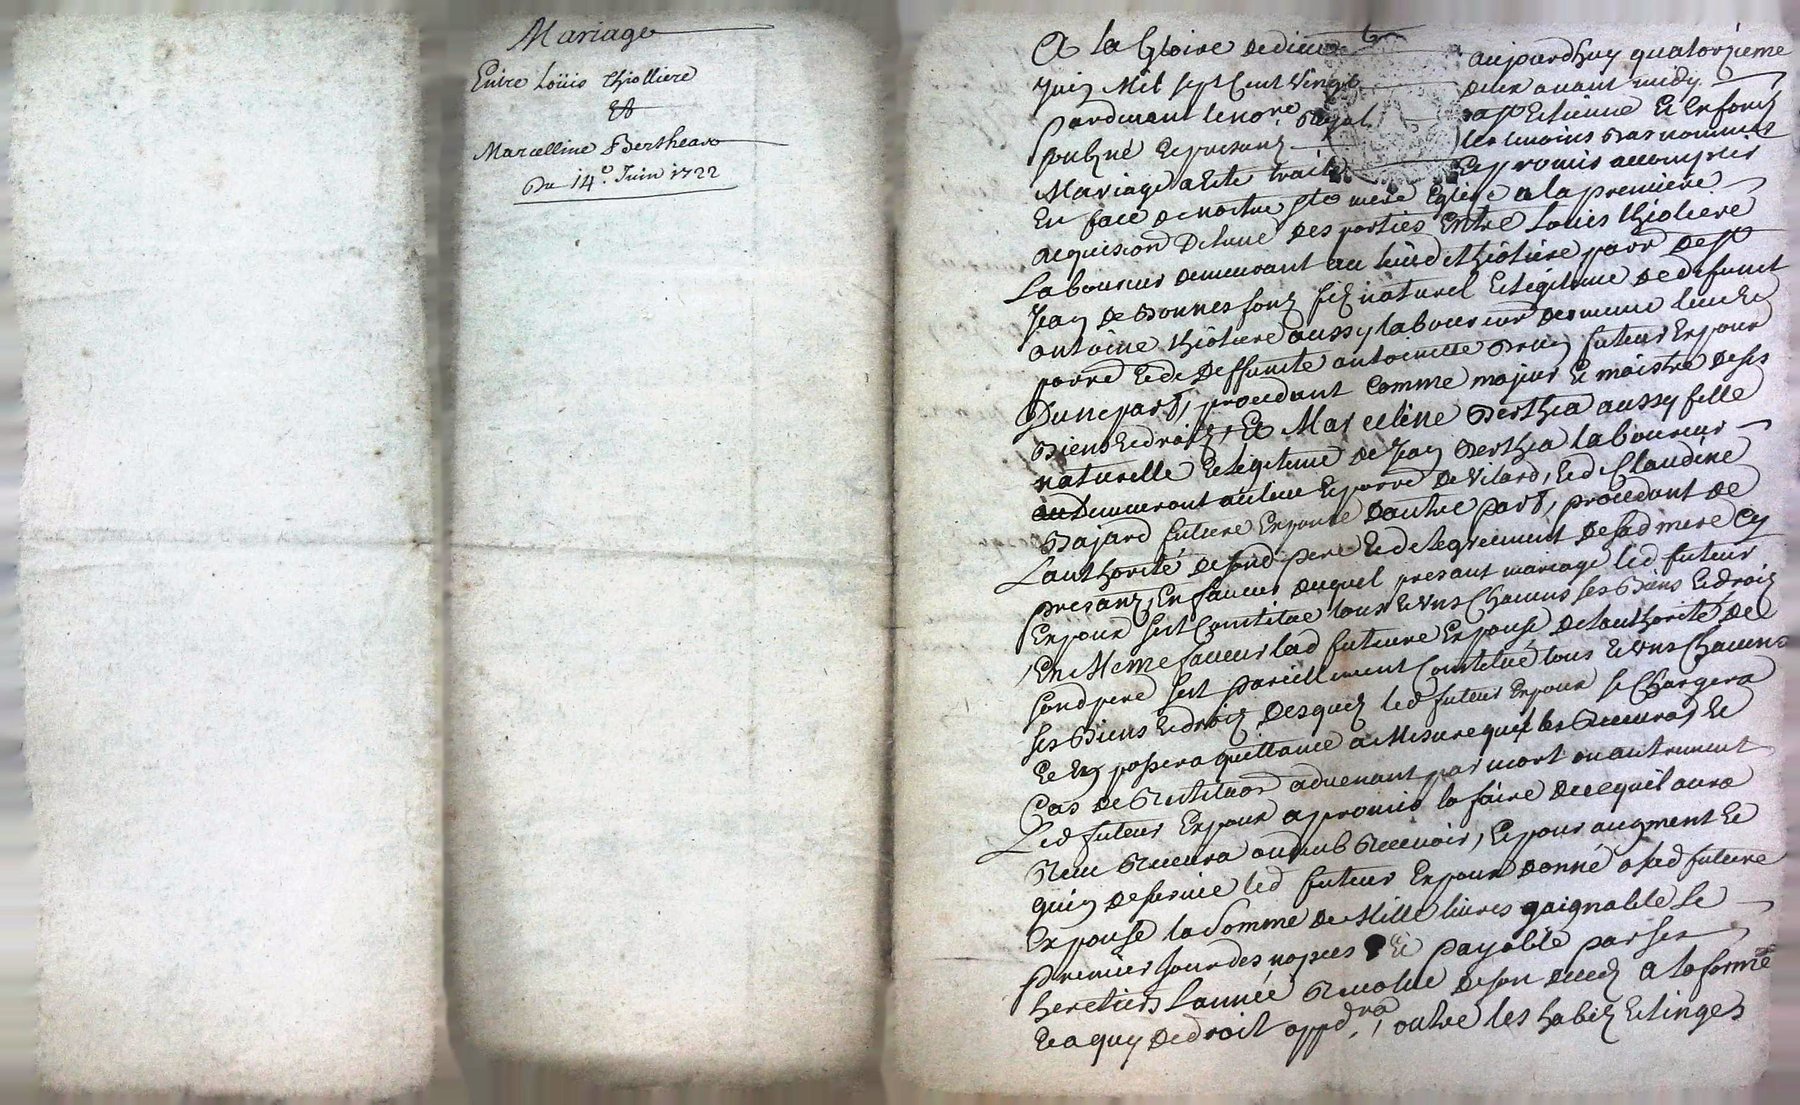 Mariage
Entre Loüis Thiolliere
Et
Marcelline Bertheas
Du 14e. Juin 1722
A la Gloire de dieu aujourdhuy quatorzieme
Juin Mil sept Cent Vingt deux avant midy
Pardevant le nore. Royal a St Etienne Et en forez
soubzné Et presents les temoins bas nommés
Mariage a Esté traité Et promis accomplir
En face de nostre Ste mere Eglise a la premiere
requision de lune des parties Entre Louis thioliere
Laboureur demeurant au lieu de thioliere parr de St
Jean de Bonnesfonz fiz naturel Et legitime de defunct
antoine thioliere aussy laboureur du mesme lieu Et
parre Et de deffuncte antoinette Brun futeur Expoux
Dune part, procedant Comme majeur Et maistre de ses
Biens Et droitz, Et Marceline Berthea aussy fille
naturelle Et legitime de Jean Berthea laboureur
demeurant au lieu Et parre de Vilard, Et de Claudine
Bajard future Expouse dautre part, procedant de
Lauthorité de sond pere Et de lagreement de sad mere cy
presantz, En faveur duquel presant mariage led futeur
Expoux sest Constitué tous Et Uns Chacuns ses Biens Et droitz
En Meme faveur lad future Expouse de lauthorité de
sond pere sest pareillement Constitué tous Et Uns Chacuns
ses Biens Et droitz desquelz led futeur Expoux se Chargera
Et En passera quittance a Mesure quil les Recevra, Et
Cas de Restituon advenant par mort ou autrement
Led futeur Expoux a promis la faire de ce quil aura
Receu Recevra ou deub Recevoir, Et pour augment Et
gain de survie led futeur Expoux donné a sad future
Expouse la somme de Mille livres gaignable le
premier jour des nopces Et payable par ses
heretiers lannée Revolue de son decedz a la forme
Et a quy de droit appdra, outre les habitz Et linges